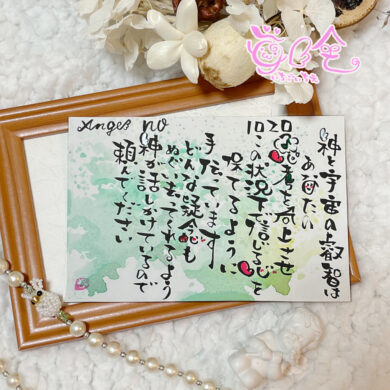 Angel no
神と宇宙の叡智は
あなたの
思考を向上させ
この状況で信じる心を
保てるように
手伝っています
どんな疑念も
めぐい去ってくれるよう
神が話しかけているので
頼んでください